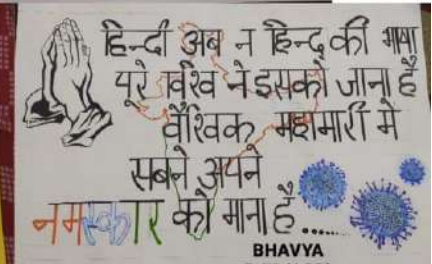 हिन्दी अब न हिन्द की भाषा
पूरे विश्व ने इसको जाना है
वैश्विक महामारी में
सबने अपने
नमस्कार को माना है......
BHAVYA